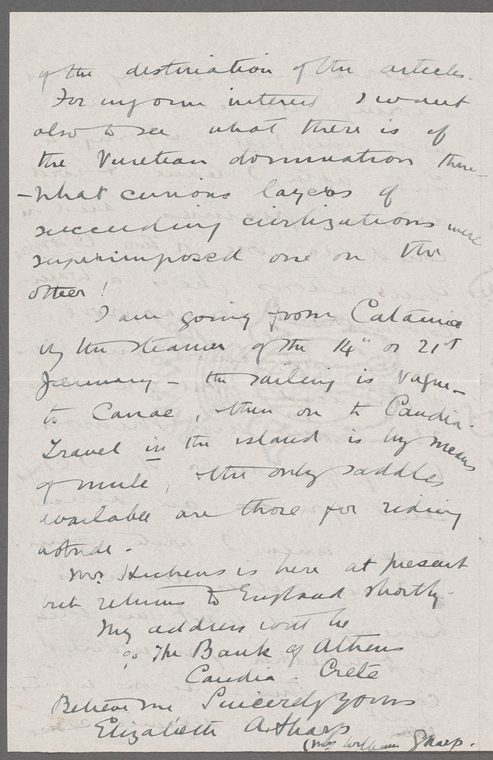 of the destination of the articles.
For my own interest I want
also to see what there is of
the Venetian domination there
- what curious layers of
succeeding civilizations were
superimposed one on the
other!
I am going from Catania
by the steamer of the 14th or 21st
January - the sailing is vague -
to Canae, then on to Candia.
Travel in the island is by means
of mule, & the only saddles
available are those for riding
astride.
Mrs Hichens is here at present
but returns to England shortly.
My address will be
c/o The Bank of Athens
Candia. Crete
Believe me Sincerely yours
Elizabeth A. Sharp
(Mrs William Sharp.